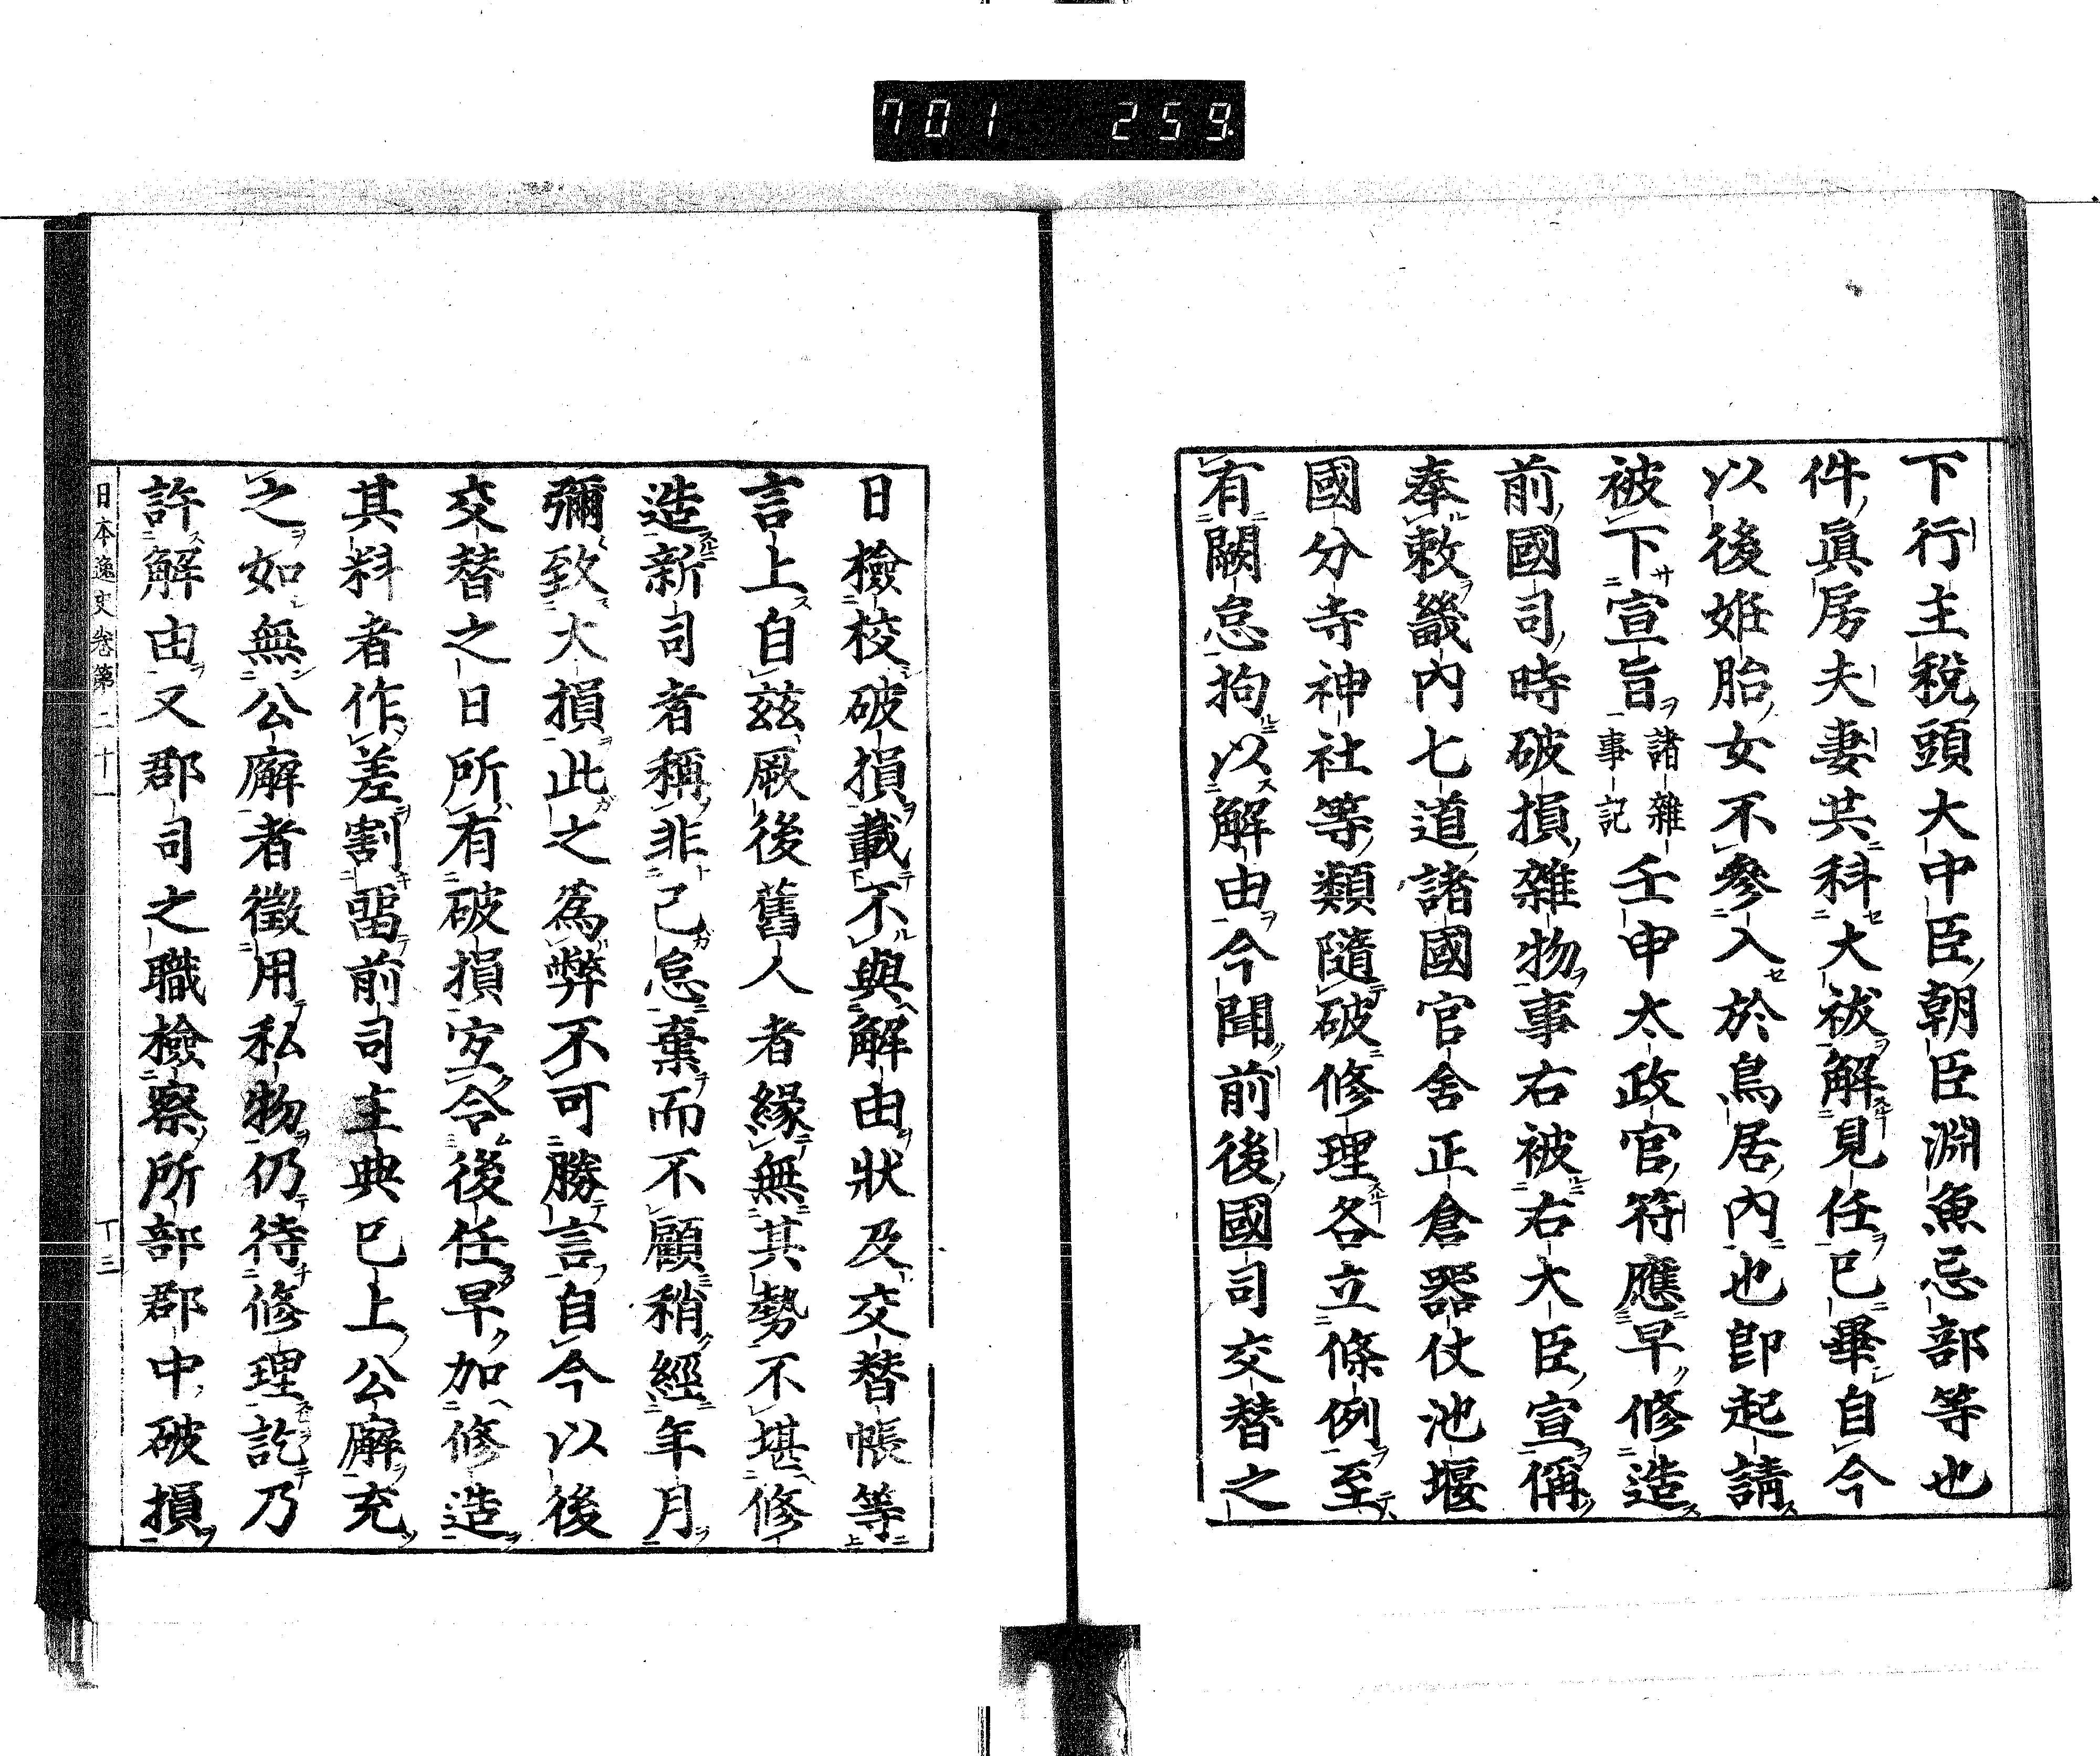 701 259
下行主税頭大中臣朝臣淵魚忌部等也
件眞房夫妻共科大祓解見任已畢自今
以後姙胎女不參入於鳥居內也卽起請
被下宣旨諸雜事記壬申太政官符應早修造
前國司時破損雜物事右被右大臣宣偁
奉敕畿內七道諸國官舍正倉器仗池堰
國分寺神社等類隨破修理各立條例至
有闕怠拘以解由今聞前後國司交替之
日檢校破損載不與解由狀及交替帳等
言上自茲厥後舊人者緣無其勢不堪修
造新司者稱非己怠棄而不顧稍經年月
彌致大損此之爲弊不可勝言自今以後
交替之日所有破損宐令後任早加修造
其料者作差割留前司主典已上公廨充
之如無公廨者徵用私物仍待修理訖乃
許解由又郡司之職檢察所部郡中破損
日本逸史卷第二十一 丁三